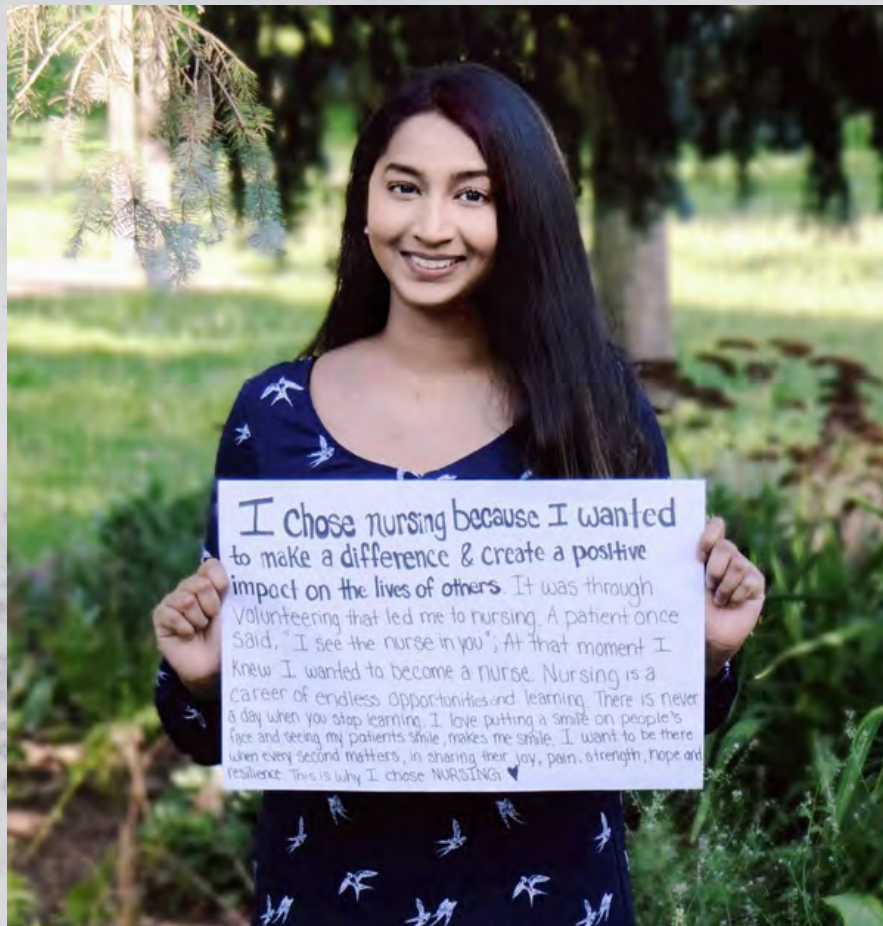 I chose nursing because I wanted
to make a difference & create a positive
impact on the lives of others. It was through
volunteering that led me to nursing. A patient once
said, "I see the nurse in you"; At that moment I
knew I wanted to become a nurse. Nursing is a
career of endless opportunities and learning. There is never
a day when you stop learning. I love putting a smile on people's
face and seeing my patients smile, makes me smile. I want to be there
when every second matters, in sharing their joy, pain, strength, hope and
resilience. This is why I chose NURSING! ♥